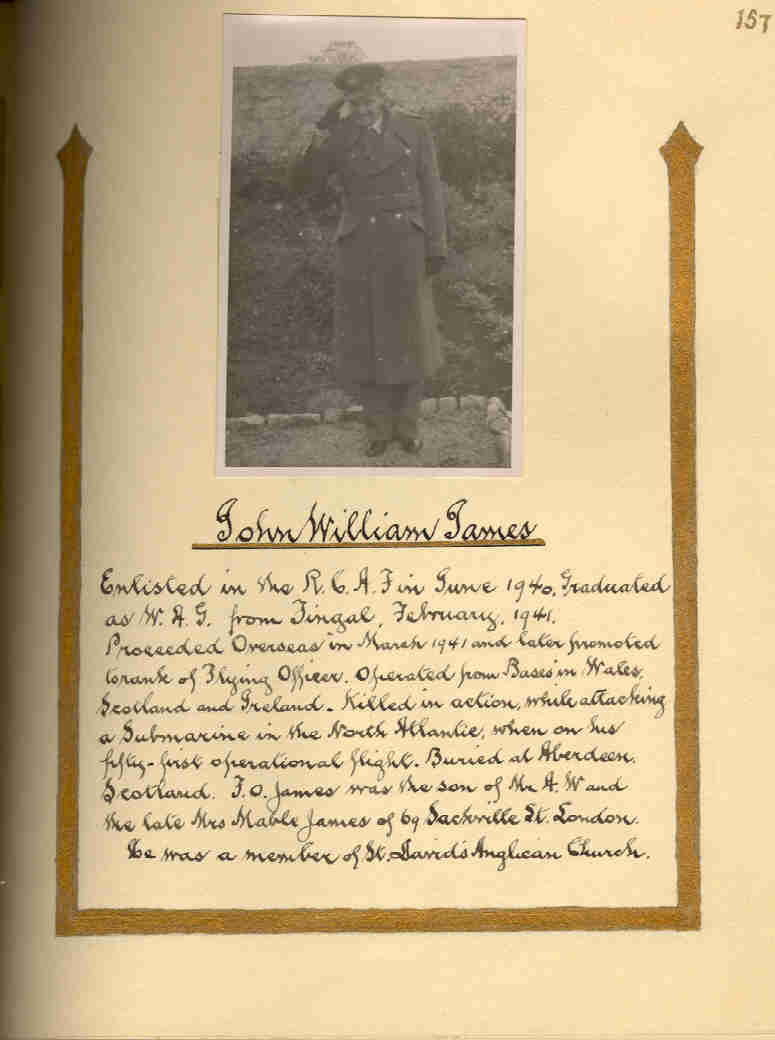 157
John William James
Enlisted in the R.C.A.F in June 1940, Graduated
as W.A.G. from Fingal, February, 1941.
Proceeded Overseas in March 1941 and later promoted
to rank of Flying Officer. Operated from Bases in Wales,
Scotland and Ireland. Killed in action, while attacking
a Submarine in the North Atlantic, when on his
fifty-first operational flight. Buried at Aberdeen,
Scotland. F.O. James was the son of Mr A.W and
the late Mrs Mable James of 69 Sackville St. London.
He was a member of St. David's Anglican Church.